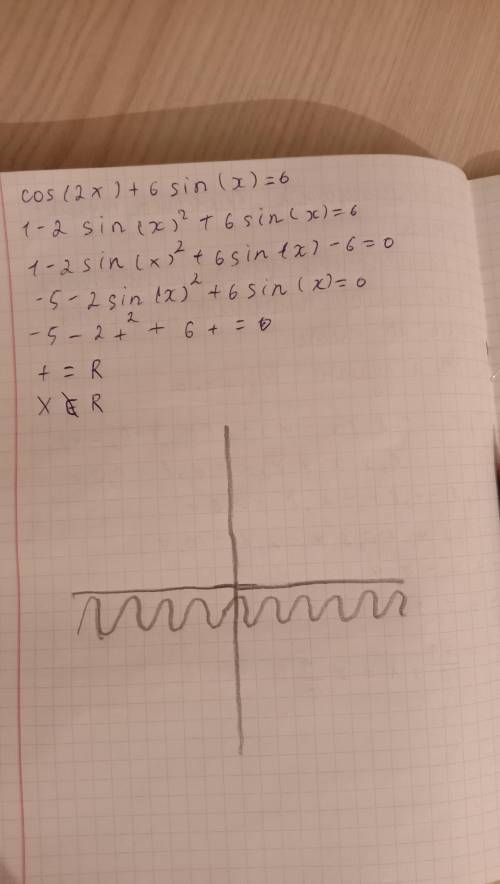 cos(2x)+6 sin(x)=6
1-2 sin(x)²+6sin(x)=6
1-2sin(x)²+6sin(x)-6=0
-5-2sin(x)²+6sin(x)=0
-5-2t²+6t=0
t=R
x∉R